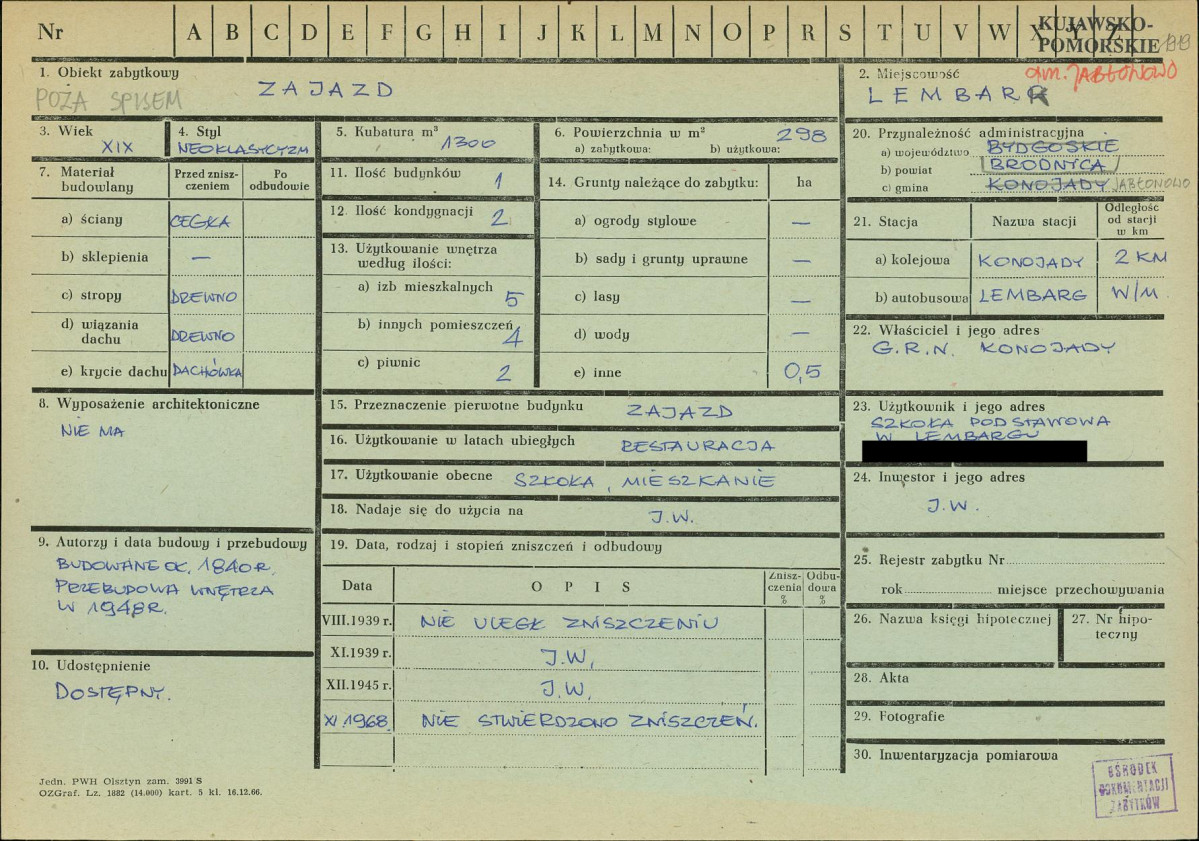 Nr A B C D E F G H I J K L M N O P R S T U V W X Y Z
KUJAWSKO-
POMORSKIE
1. Obiekt zabytkowy
ZAJAZD
POZA SPISEM
2. Miejscowość
gm. JABŁONOWO
LEMBARK
3. Wiek
XIX
4. Styl
NEOKLASYCYZM
5. Kubatura m³
1300
6. Powierzchnia w m²
298
a) zabytkowa: b) użytkowa:
7. Materiał budowlany
Przed znisz-
czeniem
Po
odbudowie
a) ściany CEGŁA
b) sklepienia —
c) stropy DREWNO
d) wiązania
dachu DREWNO
e) krycie dachu DACHÓWKA
8. Wyposażenie architektoniczne
NIE MA
9. Autorzy i data budowy i przebudowy
BUDOWANE OK. 1840 R.
PRZEBUDOWA WNĘTRZA
W 1948R.
10. Udostępnienie
DOSTĘPNY.
11. Ilość budynków 1
12. Ilość kondygnacji 2
13. Użytkowanie wnętrza
według ilości:
a) izb mieszkalnych 5
b) innych pomieszczeń 4
c) piwnic 2
14. Grunty należące do zabytku: ha
a) ogrody stylowe —
b) sady i grunty uprawne —
c) lasy —
d) wody —
e) inne 0,5
15. Przeznaczenie pierwotne budynku ZAJAZD
16. Użytkowanie w latach ubiegłych RESTAURACJA
17. Użytkowanie obecne SZKOŁA, MIESZKANIE
18. Nadaje się do użycia na J.W.
19. Data, rodzaj i stopień zniszczeń i odbudowy
Data O P I S Znisz-
czenia
% Odbu-
dowa
%
VIII.1939 r. NIE ULEGŁ ZNISZCZENIU
XI.1939 r. J.W.
XII.1945 r. J.W.
XI.1968 NIE STWIERDZONO ZNISZCZEŃ.
20. Przynależność administracyjna
a) województwo BYDGOSKIE
b) powiat BRODNICA
c) gmina KONOJADY JABŁONOWO
21. Stacja Nazwa stacji Odległość
od stacji
w km
a) kolejowa KONOJADY 2 KM
b) autobusowa LEMBARG W/M
22. Właściciel i jego adres
G.R.N. KONOJADY
23. Użytkownik i jego adres
SZKOŁA PODSTAWOWA
W LEMBARGU
24. Inwestor i jego adres
J.W.
25. Rejestr zabytku Nr
rok miejsce przechowywania
26. Nazwa księgi hipotecznej
27. Nr hipo-
teczny
28. Akta
29. Fotografie
30. Inwentaryzacja pomiarowa
Jedn. PWH Olsztyn zam. 3991 S
OZGraf. Lz. 1882 (14.000) kart. 5 kl. 16.12.66.
OŚRODEK
DOKUMENTACJI
ZABYTKÓW